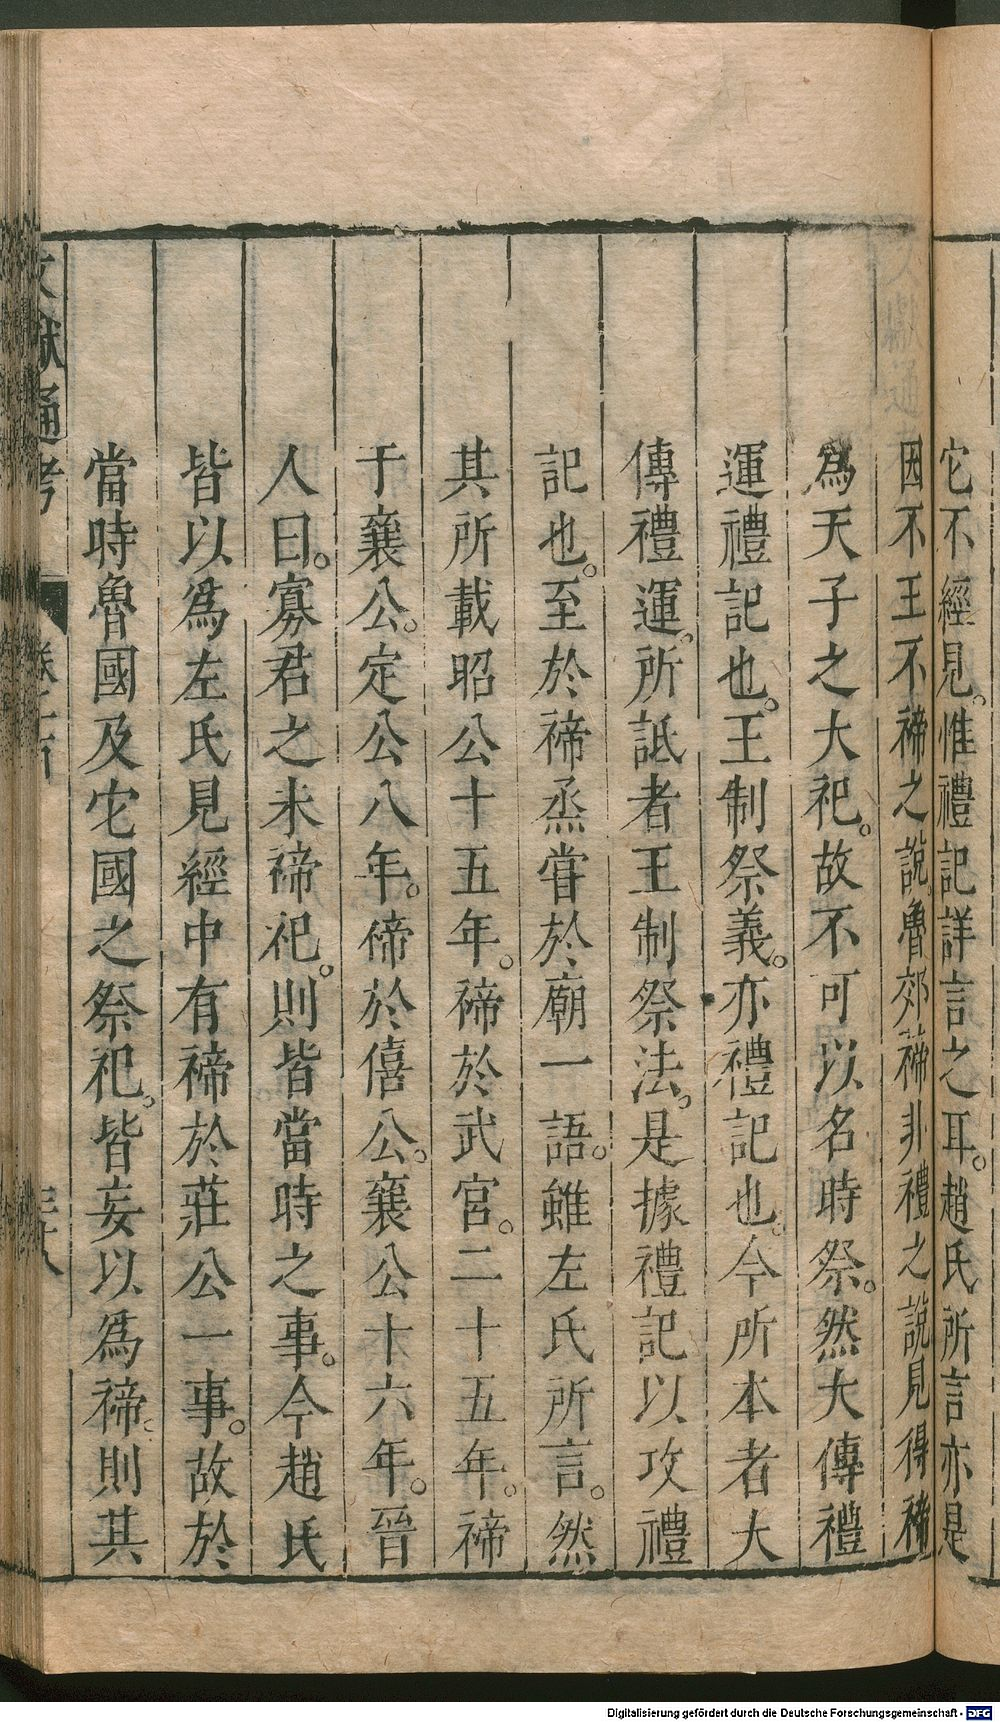 它不經見。惟禮記詳言之耳。趙氏所言亦是
因不王不禘之說。魯郊禘非禮之說見得禘
爲天子之大祀。故不可以名時祭。然大傳禮
運禮記也。王制祭義。亦禮記也。今所本者大
傳禮運。所詆者王制祭法。是據禮記以攻禮
記也。至於禘烝甞於廟一語。雖左氏所言。然
其所載昭公十五年。禘於武宮。二十五年。禘
于襄公。定公八年。禘於僖公。襄公十六年。晉
人曰。寡君之未禘祀。則皆當時之事。今趙氏
皆以爲左氏見經中有禘於莊公一事。故於
當時魯國及它國之祭祀。皆妄以爲禘。則其
文獻通考
Digitalisierung gefördert durch die Deutsche Forschungsgemeinschaft - DFG